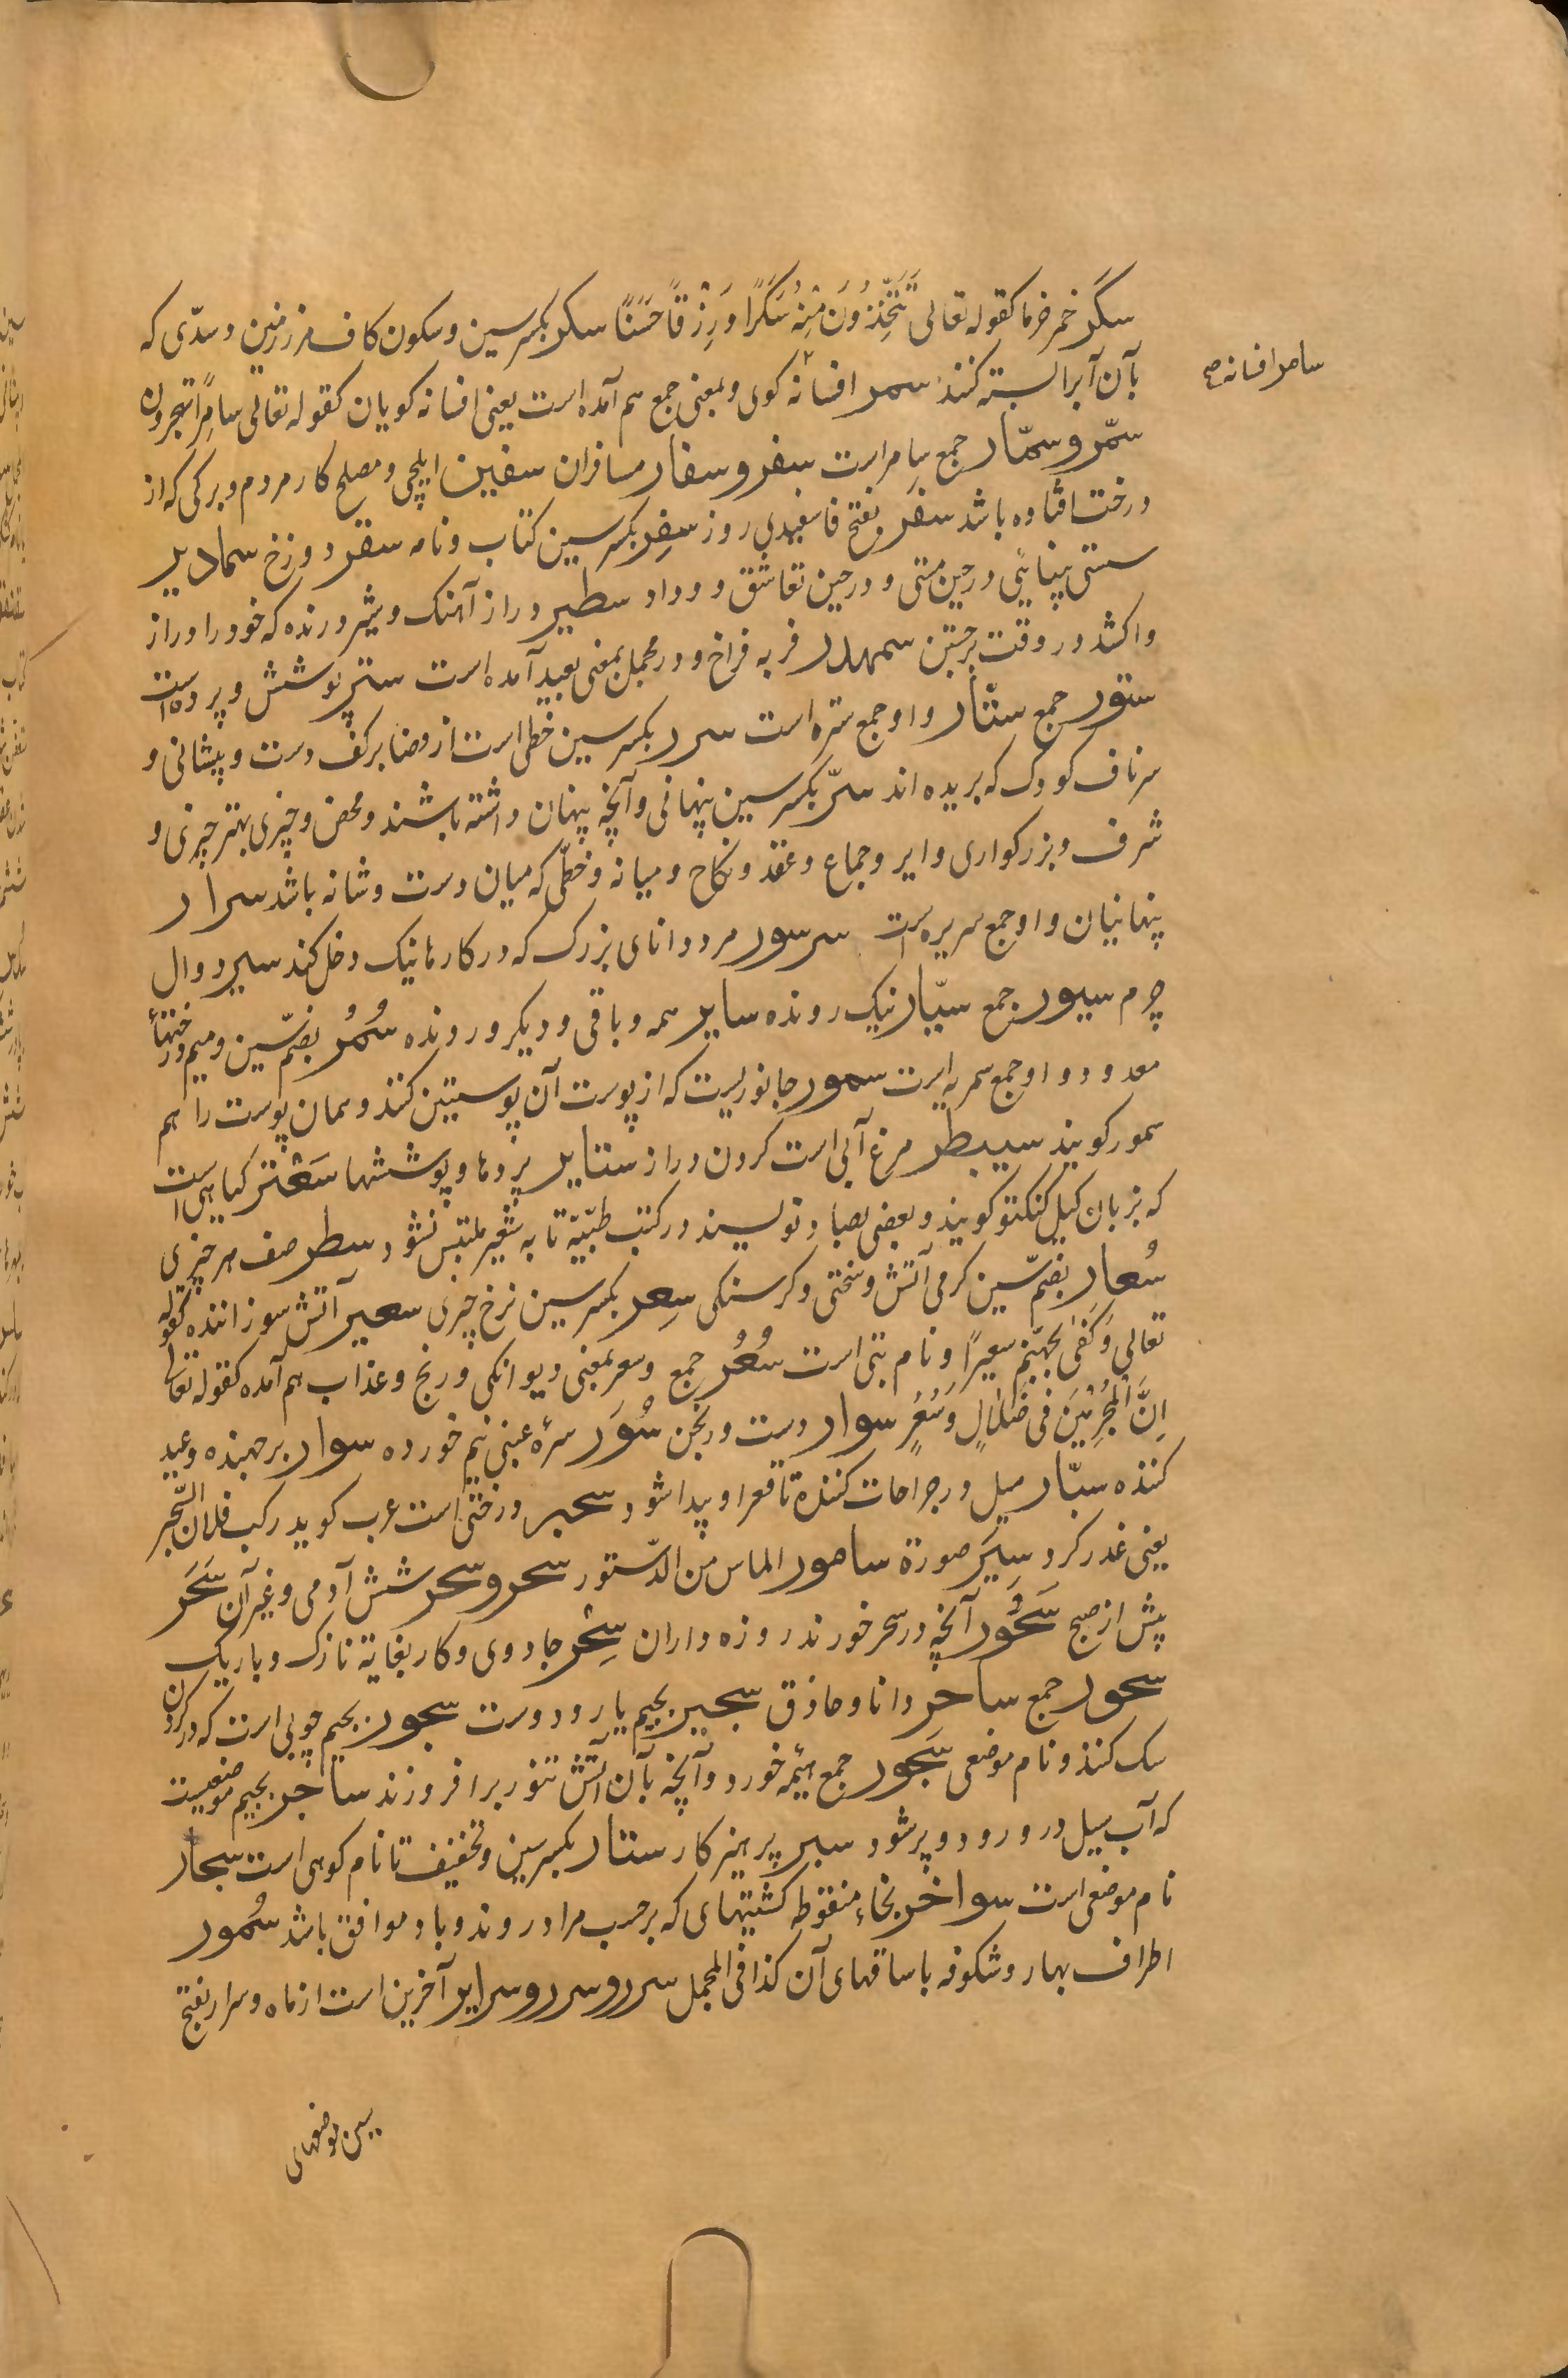 سَکَر خمر خرما کقوله تعالی تَتَّخِذُونَ مِنْهُ سَکَرًا وَرِزْقًا حَسَنًا سکر بکسر سین و سکون کاف مرز زمین و سدّی که
بآن آبرا بسته کنند سمر افسانه کوی و بمعنی جمع هم آمده است یعنی افسانه کویان کقوله تعالی سامِرًا تهجرون
سامر افسانه صح
سمّر و سمّار جمع سامر است سفر و سفار مسافران سفیر ایلچی و مصلح کار مردم و برکی که از
درخت افتاده باشد سفر بفتح فا سفیدی روز سِفِر بکسر سین کتاب و نامه سقر دوزخ سمادیر
سستی بینائی در حین مستی و در حین تعاشق و وداد سطیر دراز آهنک و شیر درنده که خود را دراز
واکشد در وقت برجستن سمهدر فربه فراخ و در مجمل بمعنی بعید آمده است ستر پوشش و پرده است
ستور جمع ستّار و او جمع ستره است سرر بکسر سین خطی است از مضا بر کف دست و پیشانی و
سر ناف کودک که بریده اند سرّ بکسر سین پنهانی و آنچه پنهان داشته باشند و محض و چیزی بهتر چیزی و
شرف و بزرکواری و ایر و جماع و عقد و نکاح و میانه و خطّی که میان دست و شانه باشد سرار
پنهانیان و او جمع سریره است سرسور مرد دانای بزرک که در کارها نیک دخل کند سیر دوال
چرم سیور جمع سیّار نیک رونده سایر همه و باقی و دیکر و رونده سُمُر بضمّ سین و میم درختها
معدود و او جمع سمره است سمور جانوریست که از پوست آن پوستین کنند و همان پوست را هم
سمور کویند سیبطر مرغ آبی است کردن دراز ستایر پردها و پوششها سَعْتر کیاهی است
که بزبان کیل کنکتو کویند و بعضی بصاد نویسند در کتب طبّیّه تا به شعیر ملتبس نشود سطر صف هر چیزی
سُعار بضمّ سین کرمی آتش و سختی و کرسنکی سِعِر بکسر سین نرخ چیزی سعیر آتش سوزاننده کقوله
تعالی وَکَفٰی بجهنّم سعیرًا و نام بتی است سُعُر جمع و سعر بمعنی دیوانکی و رنج و عذاب هم آمده کقوله تعالی
اِنَّ الْمُجْرِمِیْنَ فی ضَلَالٍ وَسُعُرٍ سوار دست ورنجن سُوَر سرۀ عینی نیم خورده سوار برجهنده و عبد
کننده سبّار میل در جراحات کننده تا قعر او پیدا شود سحبر درختی است عرب کوید رکب فلان السّحبر
یعنی غدر کرد سِیَر صورة سامور الماس من الدّستور سحر و سحر شش آدمی و غیر آن سَحَر
پیش از صبح سَحُور آنچه در سحر خورند روزه داران سِحْر جادوی و کار بغایة نازک و باریک
سحور جمع ساحر دانا و حاذق سجیر بجیم یار و دوست سجور بجیم چوبی است که در کردن
سک کنند و نام موضعی سَجور جمع هیمه خورد و آنچه بآن آتش تنور برافروزند ساجر بجیم موضعیست
که آب سیل در و رود و پر شود سبر پرهیز کار ستار بکسر سین و تخفیف تا نام کوهی است سجار
نام موضعی است سواخر بخاء منقوطه کشتیهای که برحسب مراد روند و باد موافق باشد سُمور
اطراف بهار و شکوفه با ساقهای آن کذا فی المجمل سرر و سرر و سرایر آخرین است از ماه و سرار بفتح
سین